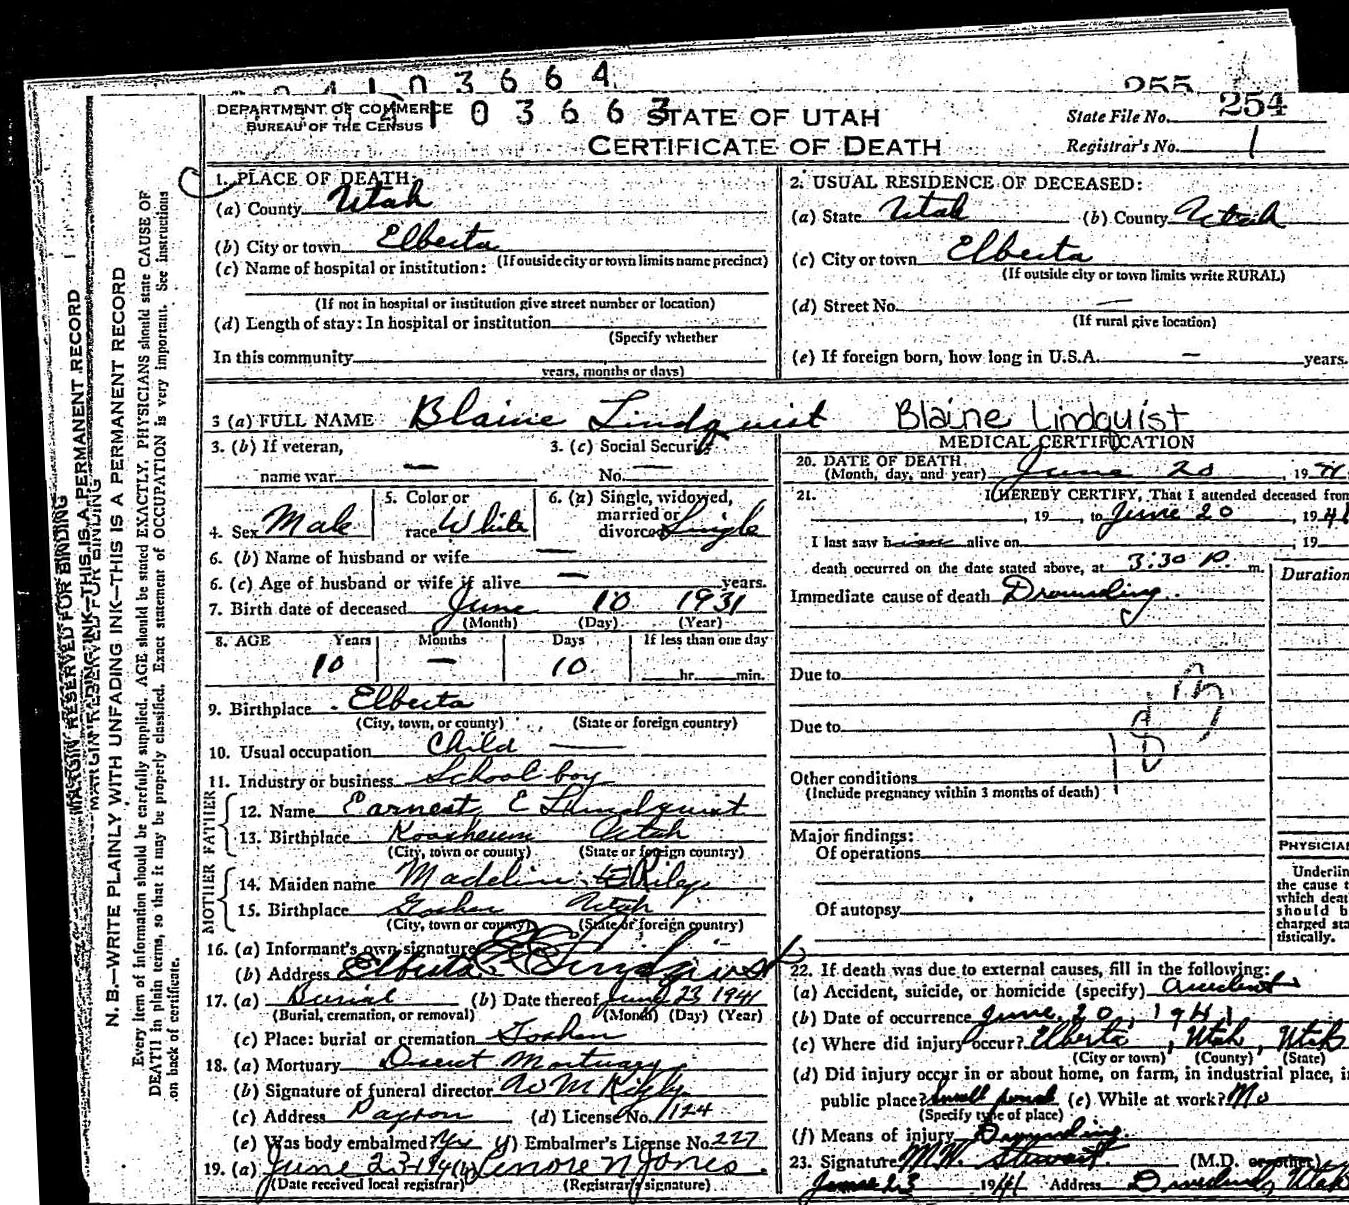 0 3 6 6 4
255
DEPARTMENT OF COMMERCE
BUREAU OF THE CENSUS
0 3 6 6 3
STATE OF UTAH
CERTIFICATE OF DEATH
State File No. 254
Registrar's No. 1
MARGIN RESERVED FOR BINDING
N. B.—WRITE PLAINLY WITH UNFADING INK—THIS IS A PERMANENT RECORD
Every item of information should be carefully supplied. AGE should be stated EXACTLY. PHYSICIANS should state CAUSE OF
DEATH in plain terms, so that it may be properly classified. Exact statement of OCCUPATION is very important. See instructions
on back of certificate.
1. PLACE OF DEATH:
(a) County Utah
(b) City or town Elberta
(If outside city or town limits name precinct)
(c) Name of hospital or institution:
(If not in hospital or institution give street number or location)
(d) Length of stay: In hospital or institution
(Specify whether
In this community
years, months or days)
2. USUAL RESIDENCE OF DECEASED:
(a) State Utah (b) County Utah
(c) City or town Elberta
(If outside city or town limits write RURAL)
(d) Street No. —
(If rural give location)
(e) If foreign born, how long in U.S.A. — years.
3 (a) FULL NAME Blaine Lindquist Blaine Lindquist
3. (b) If veteran, name war —
3. (c) Social Security No. —
4. Sex Male
5. Color or race White
6. (a) Single, widowed, married or divorced Single
6. (b) Name of husband or wife —
6. (c) Age of husband or wife if alive — years.
7. Birth date of deceased June 10 1931
(Month) (Day) (Year)
8. AGE Years Months Days If less than one day
10 — 10 hr. min.
9. Birthplace Elberta
(City, town, or county) (State or foreign country)
10. Usual occupation Child —
11. Industry or business School boy
FATHER
12. Name Earnest E Lundquist
13. Birthplace Koosharem Utah
(City, town or county) (State or foreign country)
MOTHER
14. Maiden name Madeline E Riley
15. Birthplace Goshen Utah
(City, town or county) (State or foreign country)
16. (a) Informant's own signature E E Lindquist
(b) Address Elberta
17. (a) Burial (b) Date thereof June 23 1941
(Burial, cremation, or removal) (Month) (Day) (Year)
(c) Place: burial or cremation Goshen
18. (a) Mortuary Deseret Mortuary
(b) Signature of funeral director
(c) Address Payson (d) License No. 1124
(e) Was body embalmed? Yes (f) Embalmer's License No. 227
19. (a) June 23-1941 (b) Lenore N Jones
(Date received local registrar) (Registrar's signature)
MEDICAL CERTIFICATION
20. DATE OF DEATH
(Month, day, and year) June 20 1941
21. I HEREBY CERTIFY, That I attended deceased from
, 19 , to June 20 , 1941
I last saw alive on , 19
death occurred on the date stated above, at 3:30 P. m.
Duration
Immediate cause of death Drowning
Due to
Due to
183
Other conditions
(Include pregnancy within 3 months of death)
Major findings:
Of operations
Of autopsy
PHYSICIAN
Underline
the cause t
which deat
should b
charged sta
tistically.
22. If death was due to external causes, fill in the following:
(a) Accident, suicide, or homicide (specify) Accident
(b) Date of occurrence June 20, 1941
(c) Where did injury occur? Elberta, Utah, Utah
(City or town) (County) (State)
(d) Did injury occur in or about home, on farm, in industrial place, in
public place? Small pond (e) While at work? No
(Specify type of place)
(f) Means of injury Drowning
23. Signature M.W. Stewart (M.D. or other)
June 23 1941 Address Utah